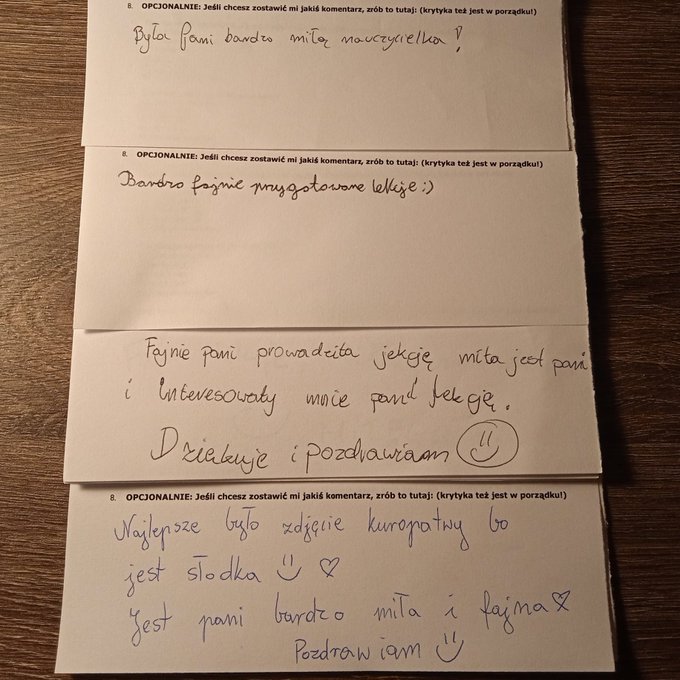 8. OPCJONALNIE: Jeśli chcesz zostawić mi jakiś komentarz, zrób to tutaj: (krytyka też jest w porządku!)
Była Pani bardzo miłą nauczycielką!
8. OPCJONALNIE: Jeśli chcesz zostawić mi jakiś komentarz, zrób to tutaj: (krytyka też jest w porządku!)
Bardzo fajnie przygotowane lekcje :)
Fajnie pani prowadziła lekcję miła jest pani
i Interesowały mnie pani lekcję.
Dziekuje i pozdrawiam
8. OPCJONALNIE: Jeśli chcesz zostawić mi jakiś komentarz, zrób to tutaj: (krytyka też jest w porządku!)
Najlepsze było zdjęcie kuropatwy bo
jest słodka
Jest pani bardzo miła i fajna
Pozdrawiam